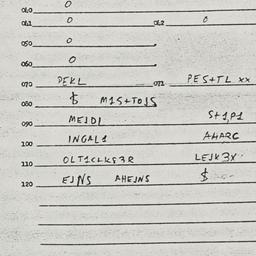 040 0
041 0 042 0
050 0
060 0
070 PEKL 071 PES+TL xx
080 $ M1S+TOJS
090 MEJDI S+1,P1
100 INGAL1 AHARC
110 OLT1CLKS3R LEJK3X
120 EJNS AHEJNS $